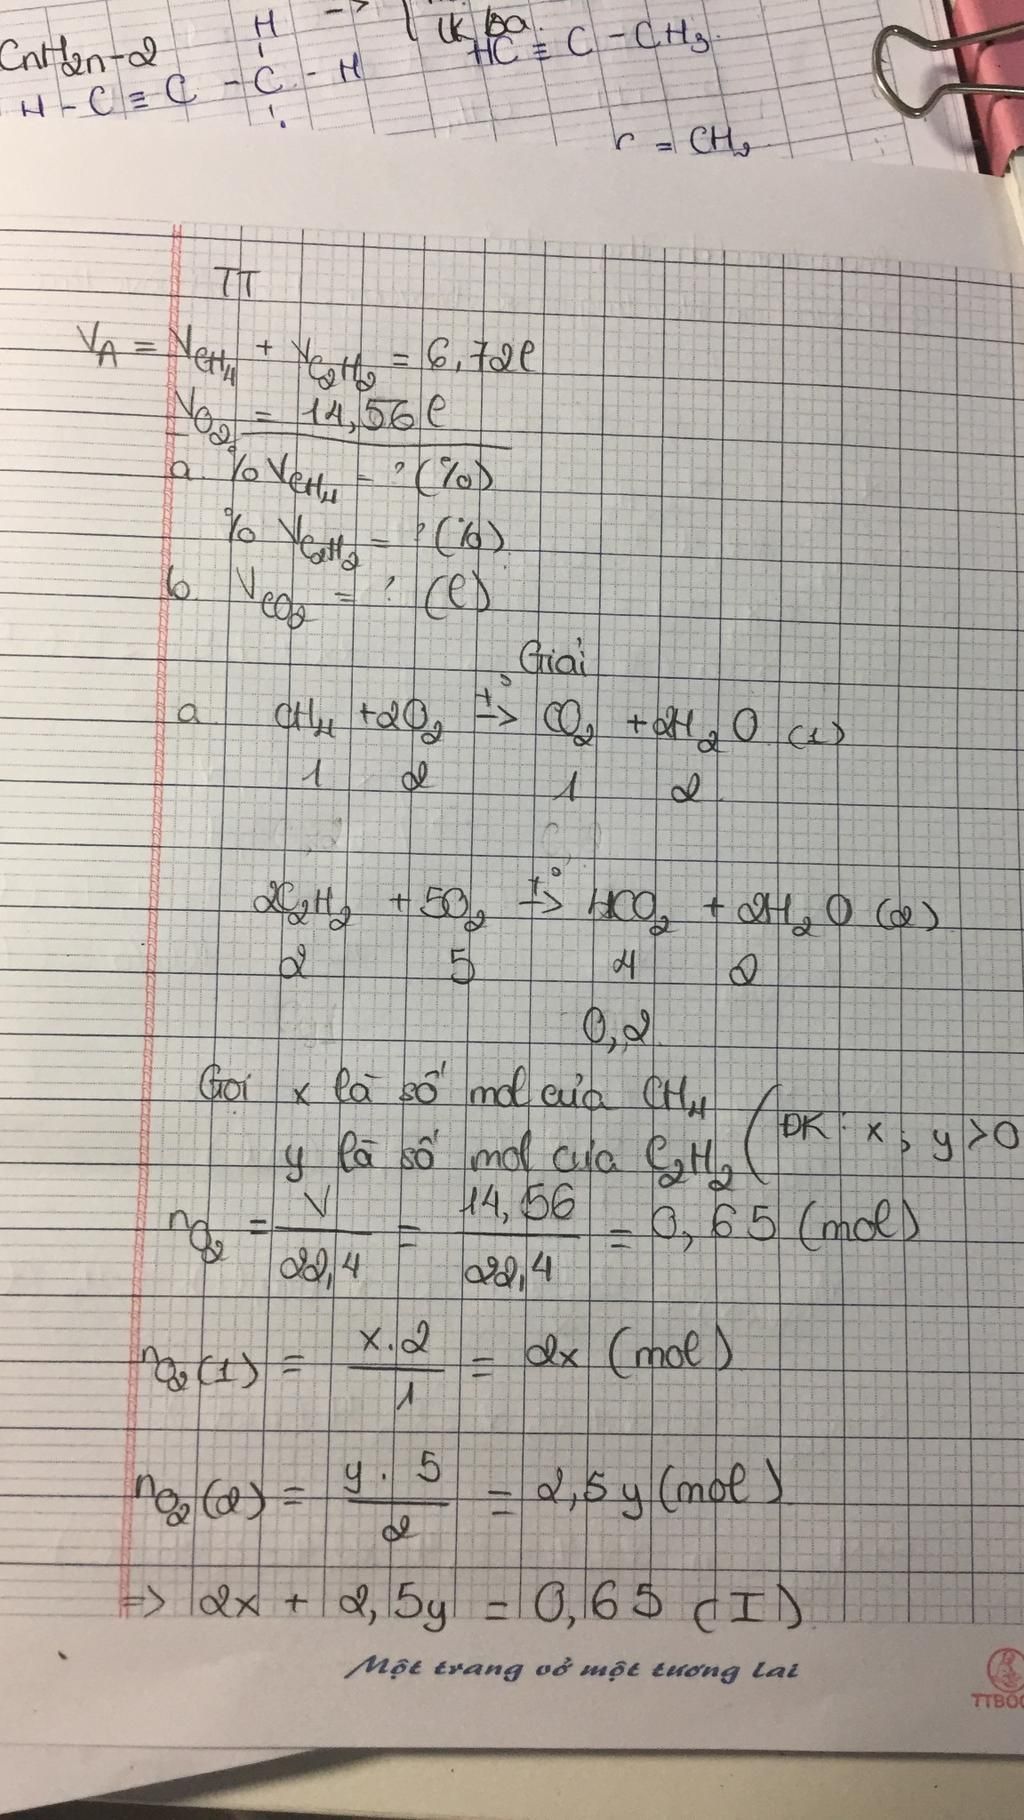 CnH2n-2
H
->
lk ba
H - C ≡ C - C - H
HC ≡ C - CH3
r = CH2
TT
VA = VCH4 + VC2H2 = 6,72l
VO2 = 14,56l
a. % VCH4 = ? (%)
% VC2H2 = ? (%)
b VCO2 = ? (l)
Giải
a CH4 + 2O2 t°-> CO2 + 2H2O (1)
1 2 1 2
2C2H2 + 5O2 t°-> 4CO2 + 2H2O (2)
2 5 4 2
0,2
Gọi x là số mol của CH4
y là số mol của C2H2 (ĐK: x, y > 0
nO2 = V/22,4 = 14,56/22,4 = 0,65 (mol)
nO2(1) = x.2/1 = 2x (mol)
nO2(2) = y.5/2 = 2,5y (mol)
=> 2x + 2,5y = 0,65 (I)
Một trang vở một tương lai